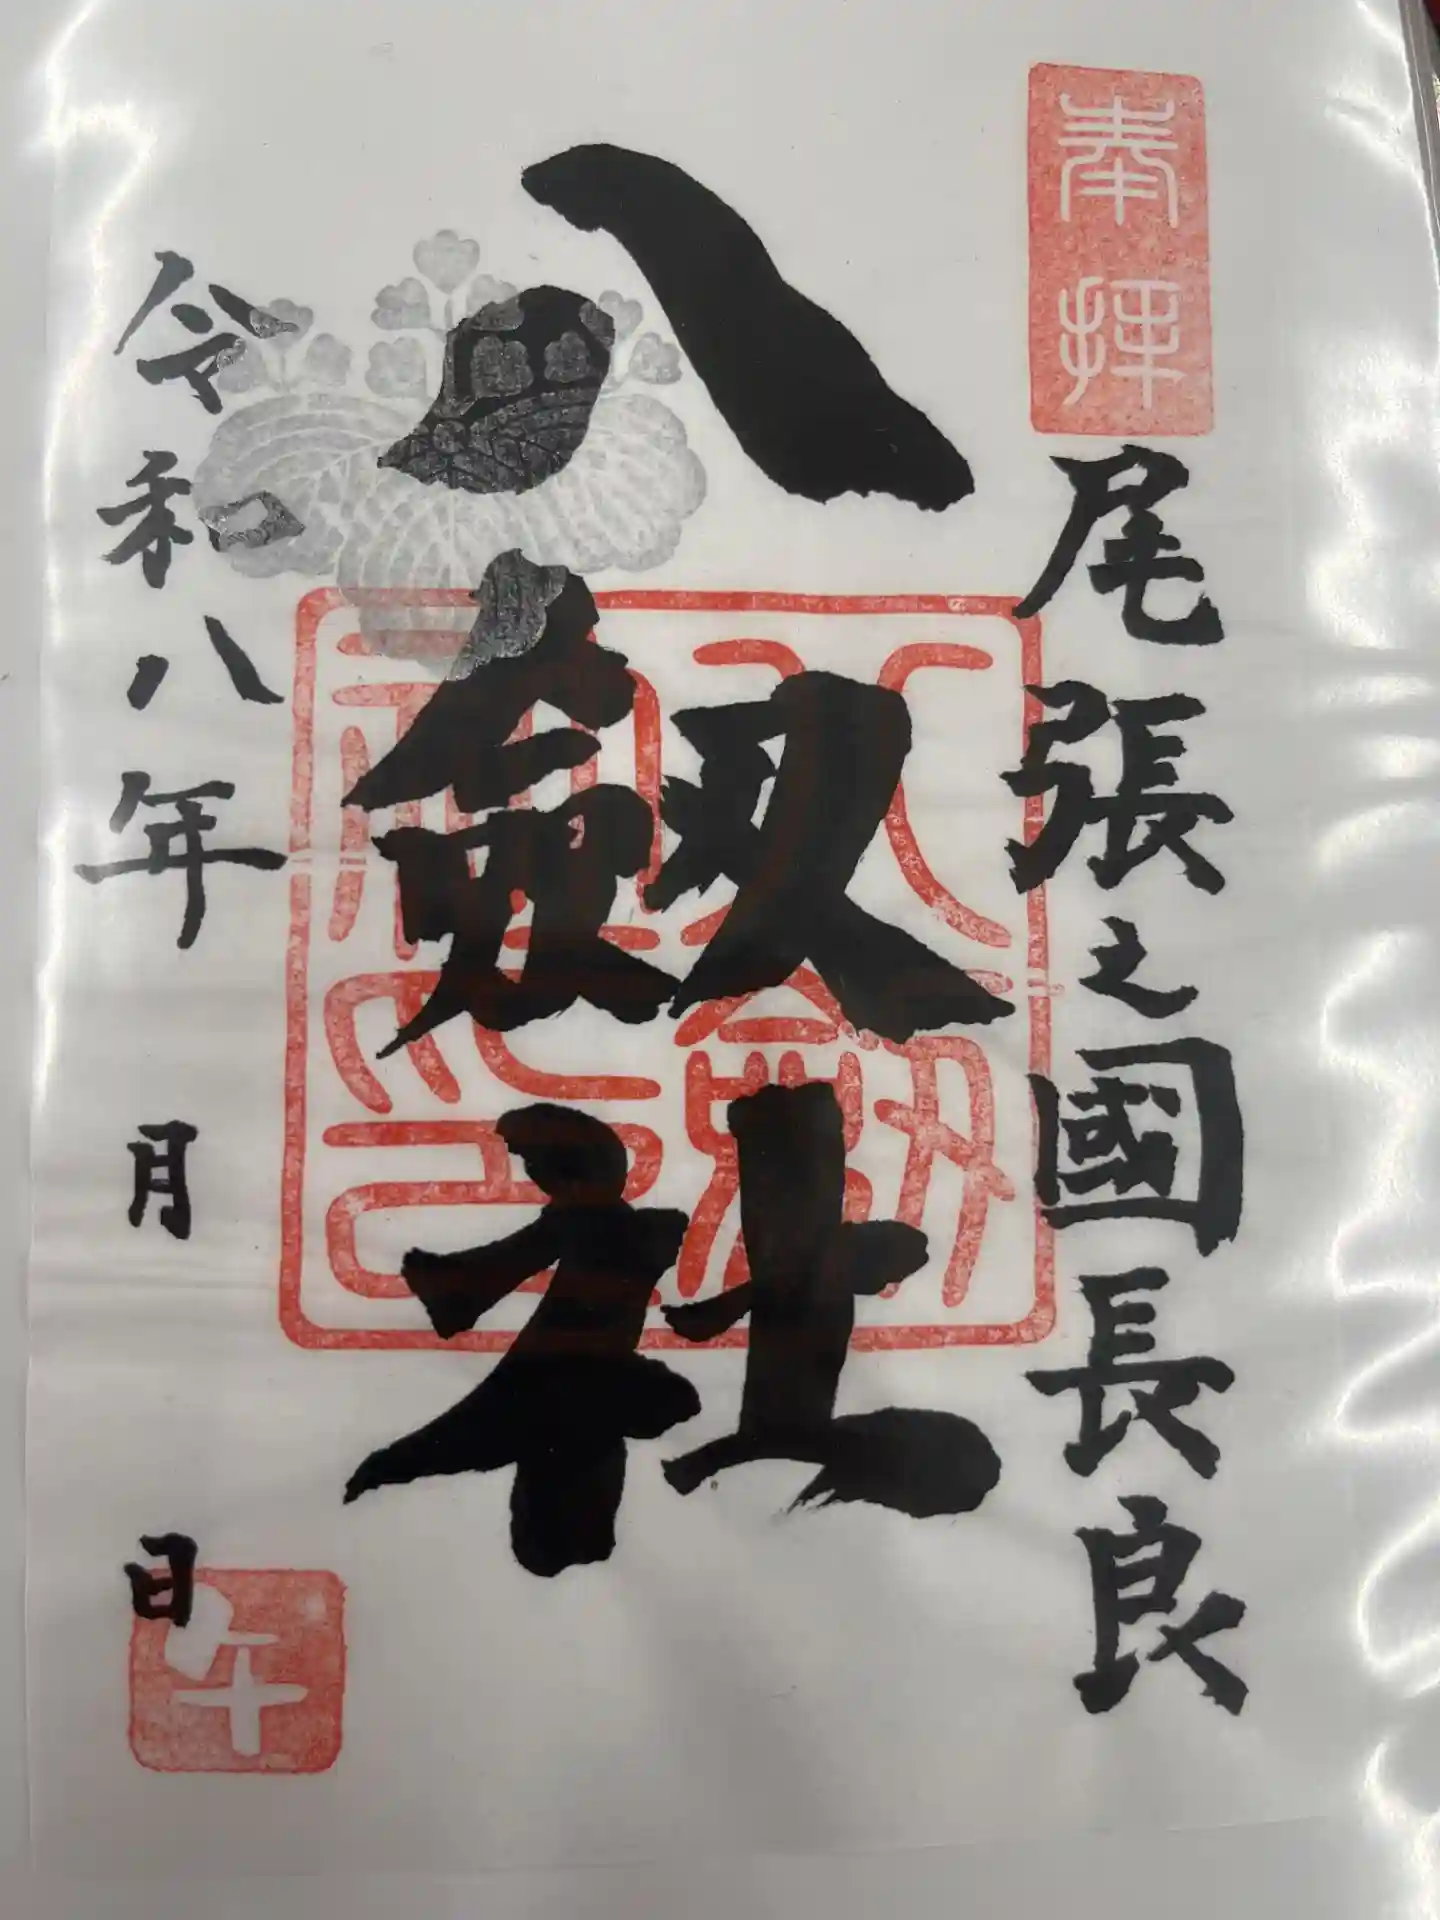 奉拝
尾張之國長良
八劔社
八劔社印
令和八年 月 日
午